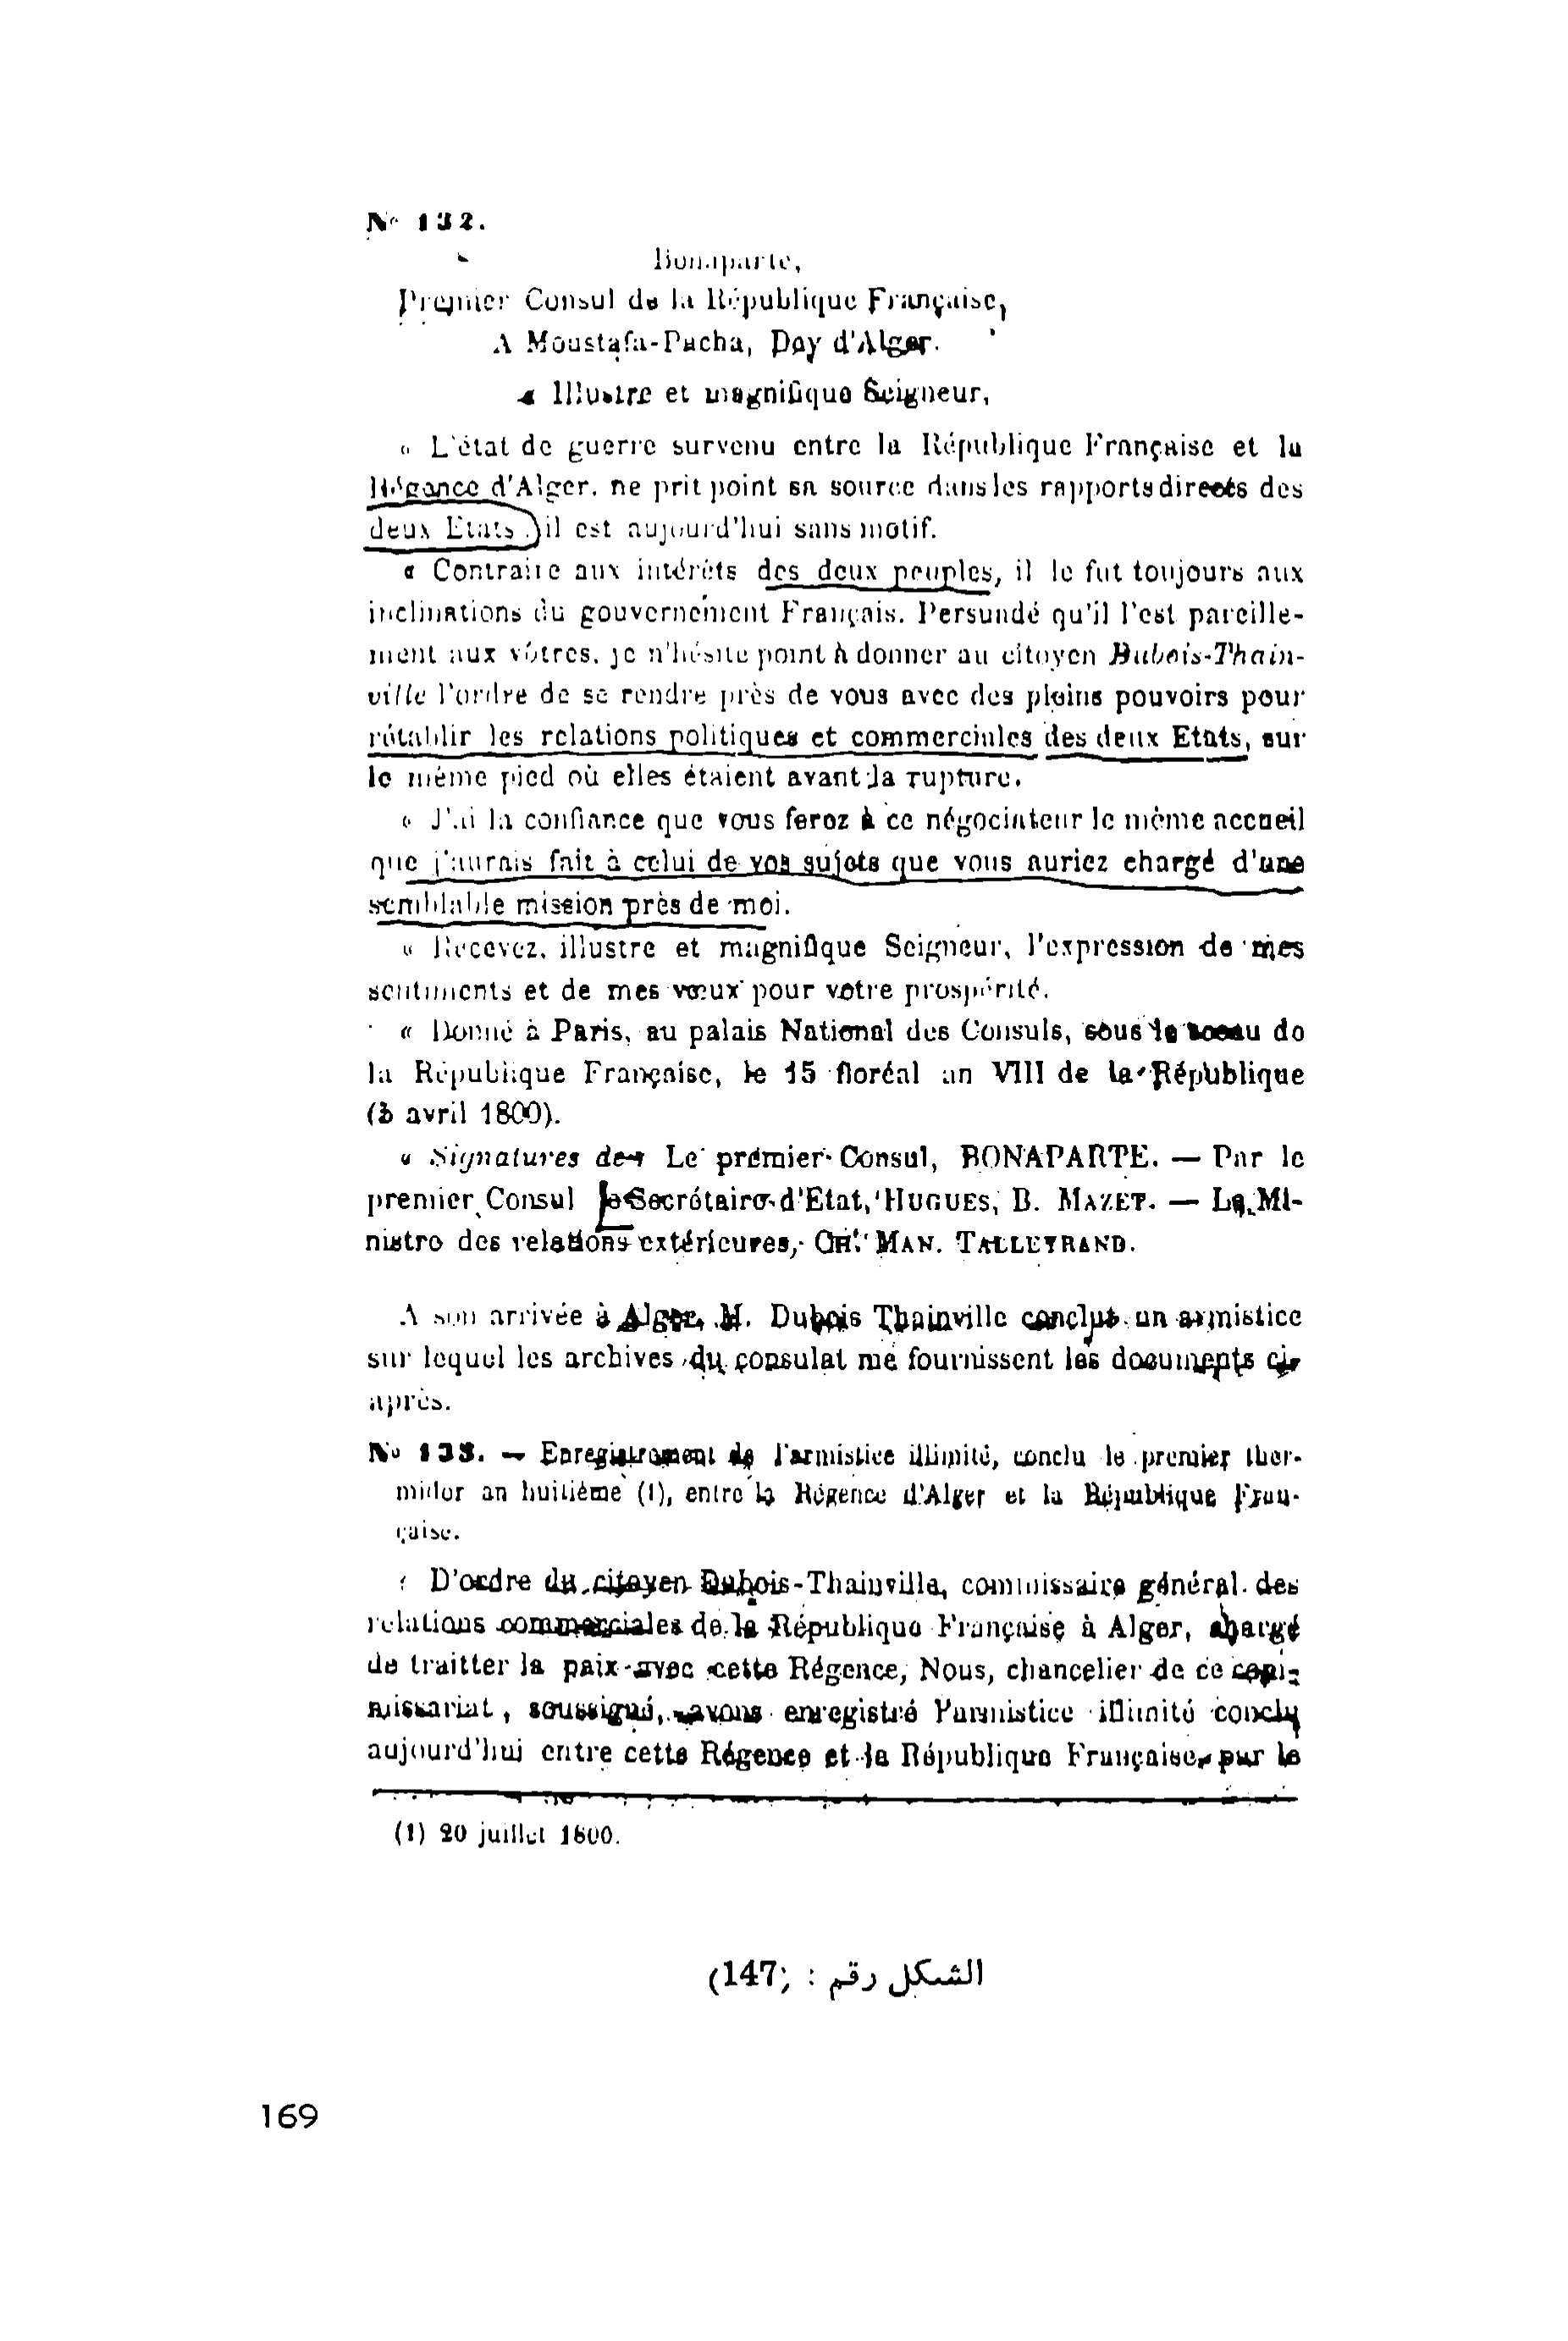 N° 132.
Bonaparte,
Premier Consul de la République Française,
A Moustafa-Pacha, Dey d'Alger.
« Illustre et magnifique Seigneur,
« L'état de guerre survenu entre la République Française et la
Régence d'Alger, ne prit point sa source dans les rapports directs des
deux Etats ; il est aujourd'hui sans motif.
« Contraire aux intérêts des deux peuples, il le fut toujours aux
inclinations du gouvernement Français. Persuadé qu'il l'est pareille-
ment aux vôtres, je n'hésite point à donner au citoyen Dubois-Thain-
ville l'ordre de se rendre près de vous avec des pleins pouvoirs pour
rétablir les relations politiques et commerciales des deux Etats, sur
le même pied où elles étaient avant la rupture.
« J'ai la confiance que vous ferez à ce négociateur le même accueil
que j'aurais fait à celui de vos sujets que vous auriez chargé d'une
semblable mission près de moi.
« Recevez, illustre et magnifique Seigneur, l'expression de mes
sentiments et de mes vœux pour votre prospérité.
« Donné à Paris, au palais National des Consuls, sous le sceau de
la République Française, le 15 floréal an VIII de la République
(5 avril 1800).
« Signatures de : Le premier Consul, BONAPARTE. — Par le
premier Consul le Secrétaire d'Etat, HUGUES, B. MAZET. — Le Mi-
nistre des relations extérieures, CH. MAN. TALLEYRAND.
A son arrivée à Alger, M. Dubois Thainville conclut un armistice
sur lequel les archives du consulat me fournissent les documents ci-
après.
N° 133. — Enregistrement de l'armistice illimité, conclu le premier ther-
midor an huitième (1), entre la Régence d'Alger et la République Fran-
çaise.
« D'ordre du citoyen Dubois-Thainville, commissaire général des
relations commerciales de la République Française à Alger, chargé
de traitter la paix avec cette Régence, Nous, chancelier de ce com-
missariat, soussigné, avons enregistré l'armistice illimité conclu
aujourd'hui entre cette Régence et la République Française, par le
(1) 20 juillet 1800.
الشكل رقم : (147)
169